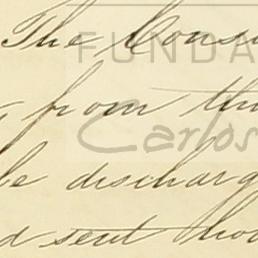 The Consu
FUNDA
from this
Carlos
be discharg
d sent hom